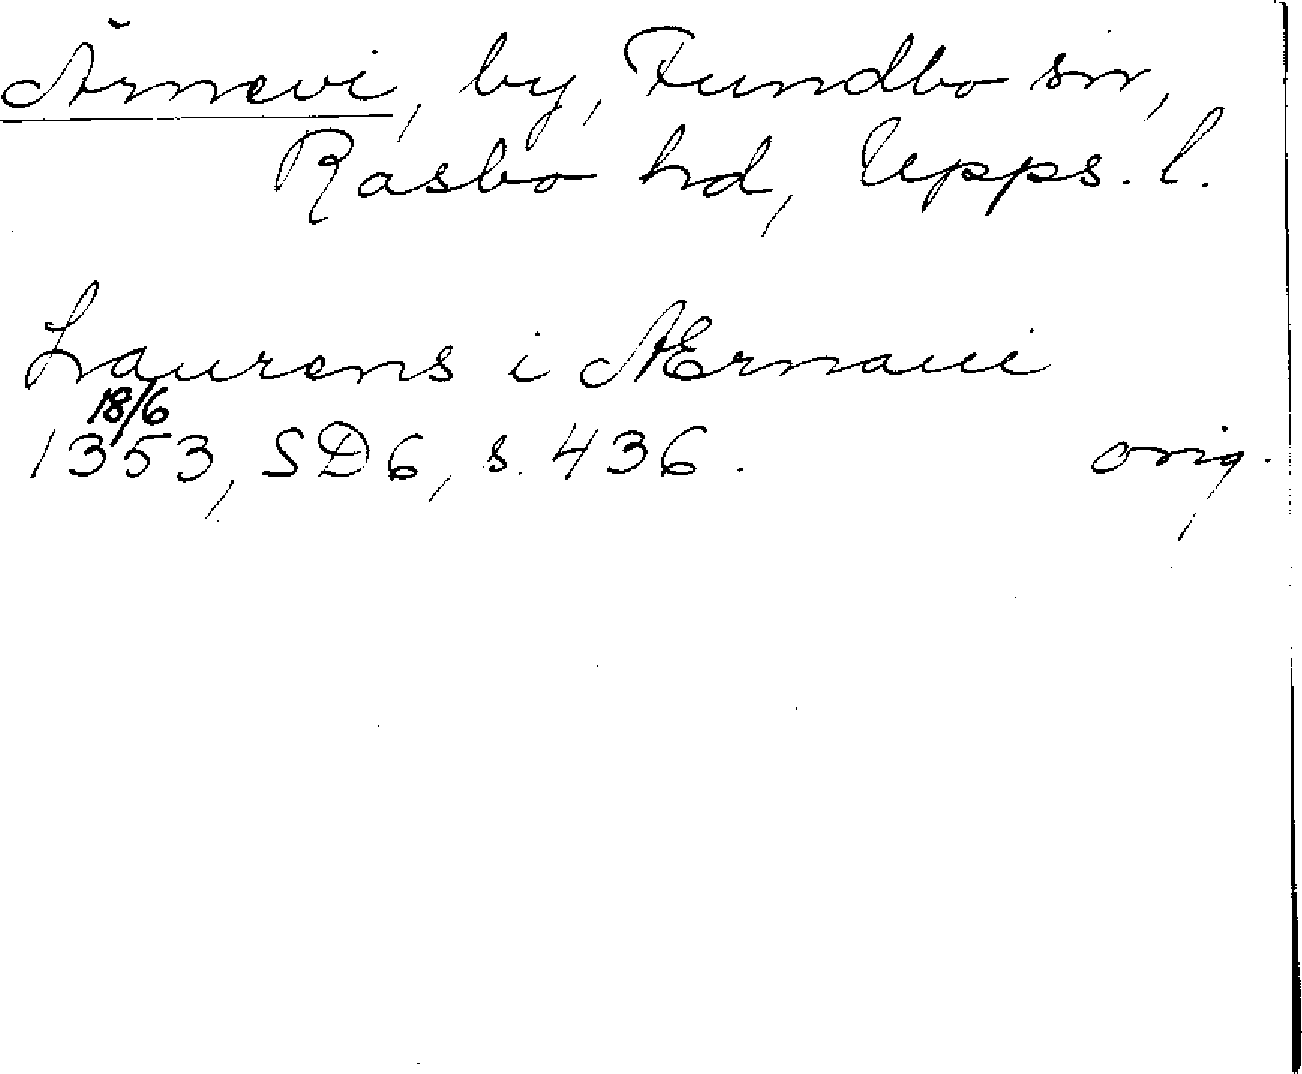 Ärnevi, by, Fundbo sn,
Rasbo hd, Upps. l.
Laurens i Ærnaui
18/6
1353, SD6, s. 436. orig.